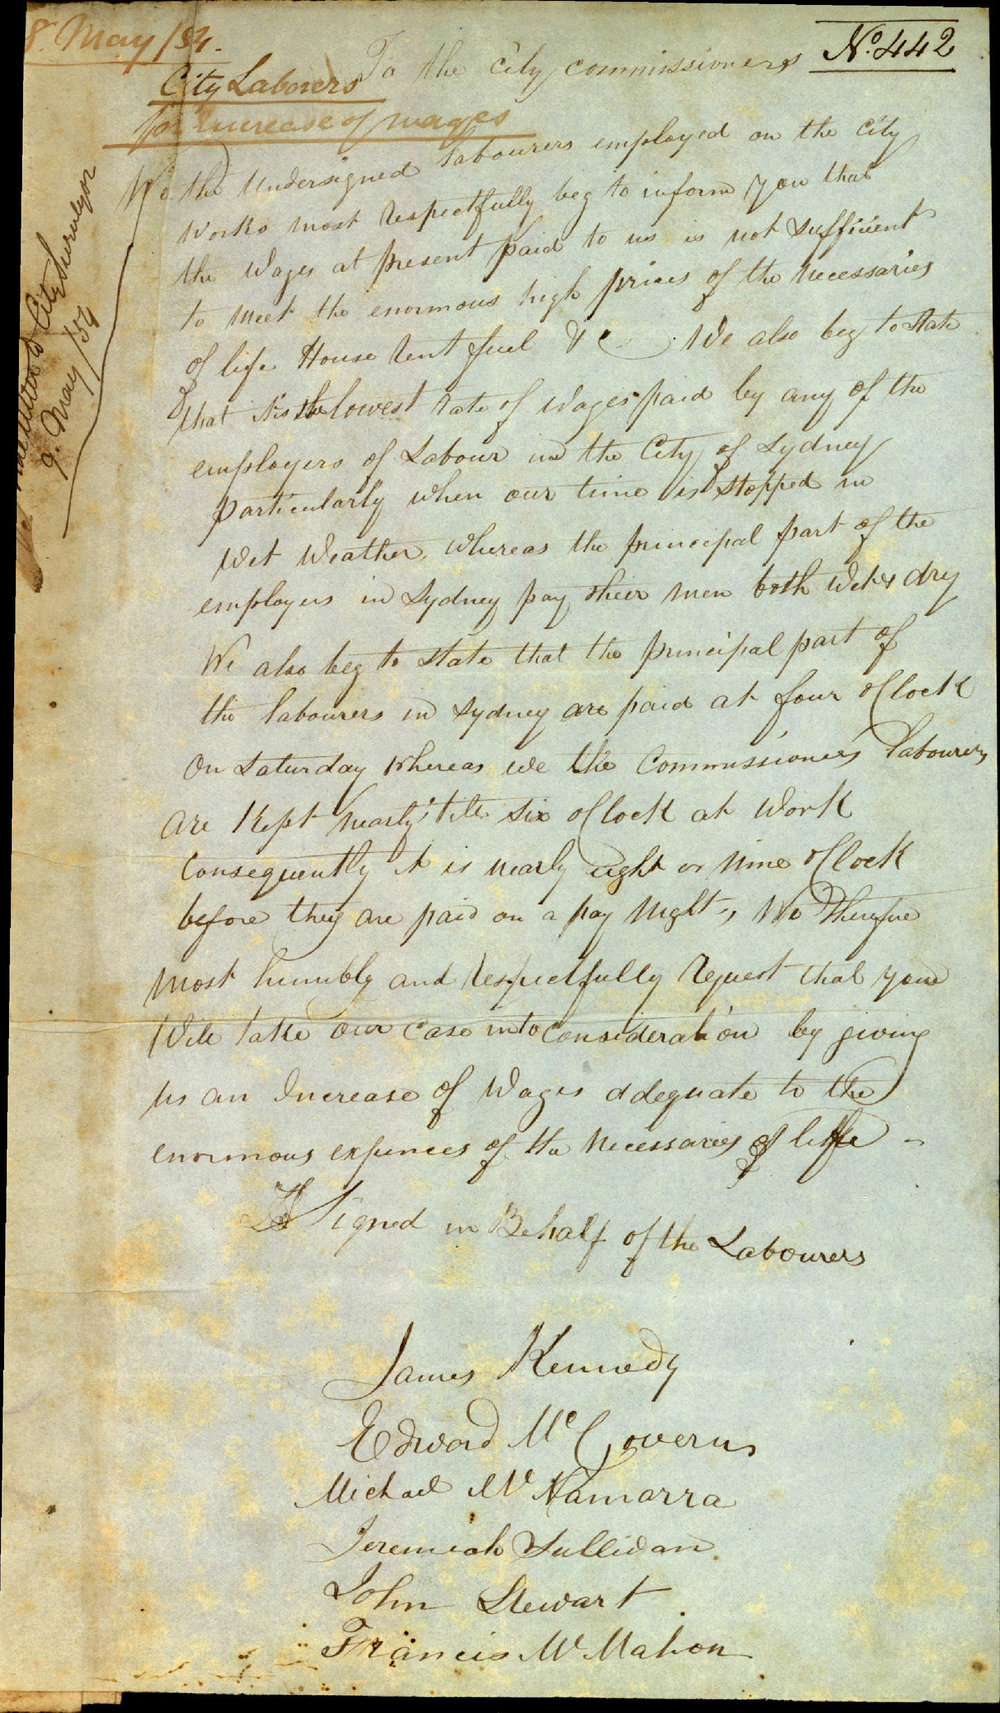 8 May/54.
No. 442
To the City Commissioners
City Laborers
for Increase of wages
We the Undersigned labourers employed on the City
Works most respectfully beg to inform you that
the Wages at present paid to us is not Sufficient
to meet the enormous high prices of the necessaries
of life House rent fuel &c We also beg to State
that its the lowest rate of wages paid by any of the
employers of Labour in the City of Sydney
particularly when our time is Stopped in
Wet Weather, Whereas the principal part of the
employers in Sydney pay their men both Wet & dry
We also beg to State that the principal part of
the labourers in Sydney are paid at four oClock
On Saturday whereas we the Commissioners labourers
are kept nearly till six oClock at Work
Consequently it is nearly eight or nine oClock
before they are paid on a pay Night, We Therefore
most humbly and respectfully request that you
Will take our case into consideration by giving
us an Increase of Wages adequate to the
enormous expences of the necessaries of liffe -
Signed in Behalf of the Labourers
James Kennedy
Edward McGoverns
Michael McNamarra
Jeremiah Sullivan.
John Stewart
Francis McMahon
to City Surveyor
9. May/54